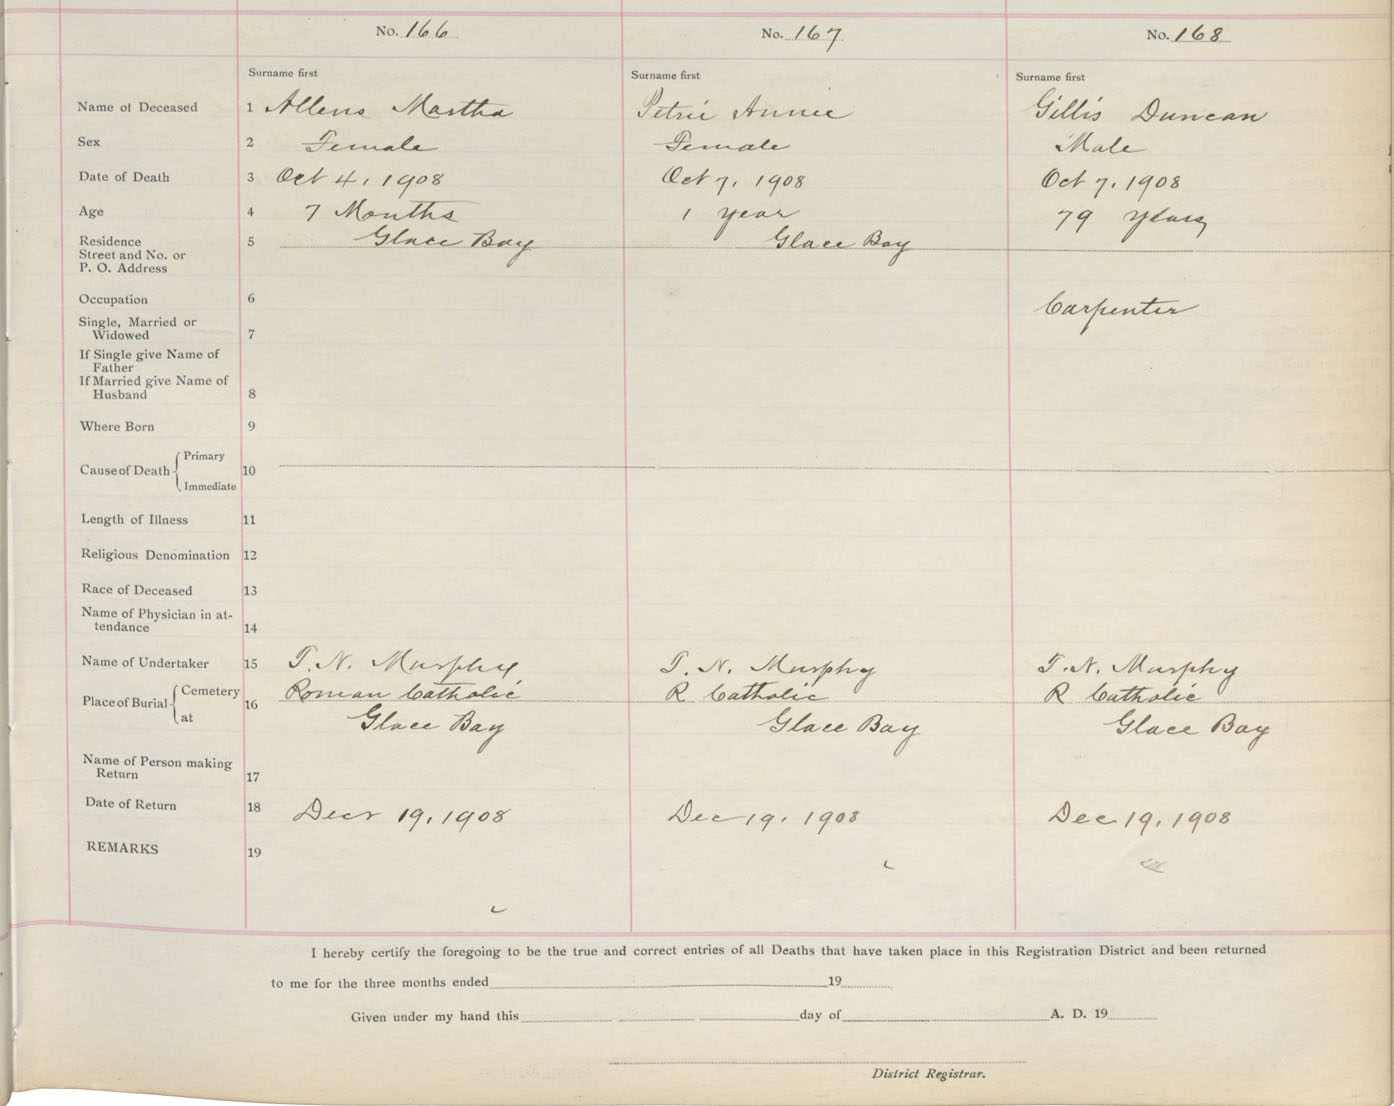 No. 166 No. 167 No. 168
Surname first Surname first Surname first
Name of Deceased 1 Allens Martha Petrie Annie Gillis Duncan
Sex 2 Female Female Male
Date of Death 3 Oct 4, 1908 Oct 7, 1908 Oct 7, 1908
Age 4 7 Months 1 year 79 years
Residence 5 Glace Bay Glace Bay
Street and No. or
P. O. Address
Occupation 6 Carpenter
Single, Married or
Widowed 7
If Single give Name of
Father
If Married give Name of
Husband 8
Where Born 9
Primary
Cause of Death 10
Immediate
Length of Illness 11
Religious Denomination 12
Race of Deceased 13
Name of Physician in at-
tendance 14
Name of Undertaker 15 T. N. Murphy T. N. Murphy T. N. Murphy
Cemetery Roman Catholic R Catholic R Catholic
Place of Burial 16
at Glace Bay Glace Bay Glace Bay
Name of Person making
Return 17
Date of Return 18 Decr 19, 1908 Dec 19, 1908 Dec 19, 1908
REMARKS 19
I hereby certify the foregoing to be the true and correct entries of all Deaths that have taken place in this Registration District and been returned
to me for the three months ended 19
Given under my hand this day of A. D. 19
District Registrar.